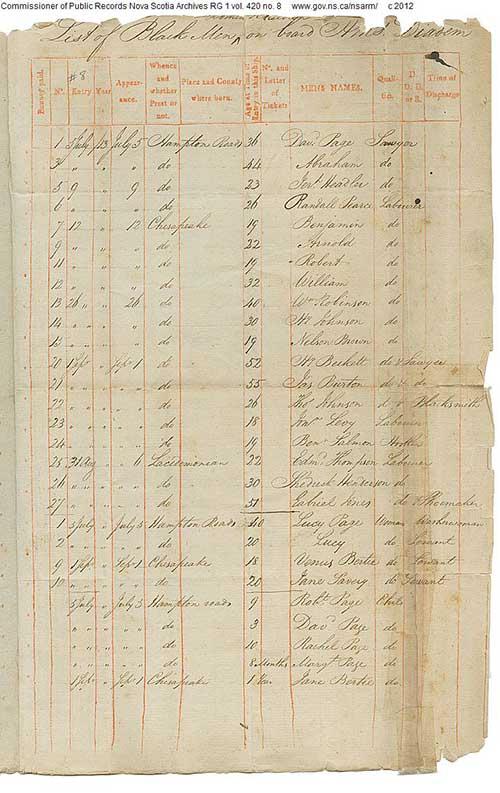 Commissioner of Public Records Nova Scotia Archives RG 1 vol. 420 no. 8 www.gov.ns.ca/nsarm/ c 2012
List of Black Men, on board HMS Diadem
Bounty paid. Nº. Entry Year Appearance. Whence and whether Prest or not. Place and County where born. Age at Time of Entry in this Ship. Nº. and Letter of Tickets MEN'S NAMES. Qualities. D. D.D. or R. Time of Discharge
#8
1 5 July 13 July 5 Hampton Roads 36 Davd Page Sawyer
3 " " " do 44 Abraham do
5 9 " 9 do 23 Jerh Headley do
6 " " " do 26 Randall Pearce Labourer
7 12 " 12 Chesapeake 19 Benjamin do
9 " " " do 22 Arnold do
11 " " " do 19 Robert do
12 " " " do 32 William do
13 26 " " 26 do 40 Wm Robinson do
14 " " " do 30 Hy Johnson do
15 " " " do 19 Nelson Brown do
20 1 Sepr " Sep 1 do 52 Hy Beckett do & Sawyer
21 " " " do 55 Jas Burton do & do
22 " " " do 26 Thos Johnson d & Blacksmith
23 " " " do 18 Levy Labourer
24 " " " do 19 Benn Salmon
25 31 Aug " 6 Lacedemonian 22 Edmd Thompson Labourer
26 " " " do 30 Shedrick Henderson do
27 " " " do 51 Gabriel Jones do & Shoemaker
1 5 July " July 5 Hampton Roads 40 Lucy Page Woman Washerwoman
2 " " " do 20 Lucy do Servant
9 1 Sep " Sep 1 Chesapeake 18 Venus Bertie do Servant
10 " " " do 20 Jane Savery do Servant
5 July " July 5 Hampton roads 9 Robt Page Child
" " " do 3 Davd Page do
" " " do 10 Rachel Page do
" " " do 8 Months Margt Page do
1 Sep " Sep 1 Chesapeake 1 Year Jane Bertie do